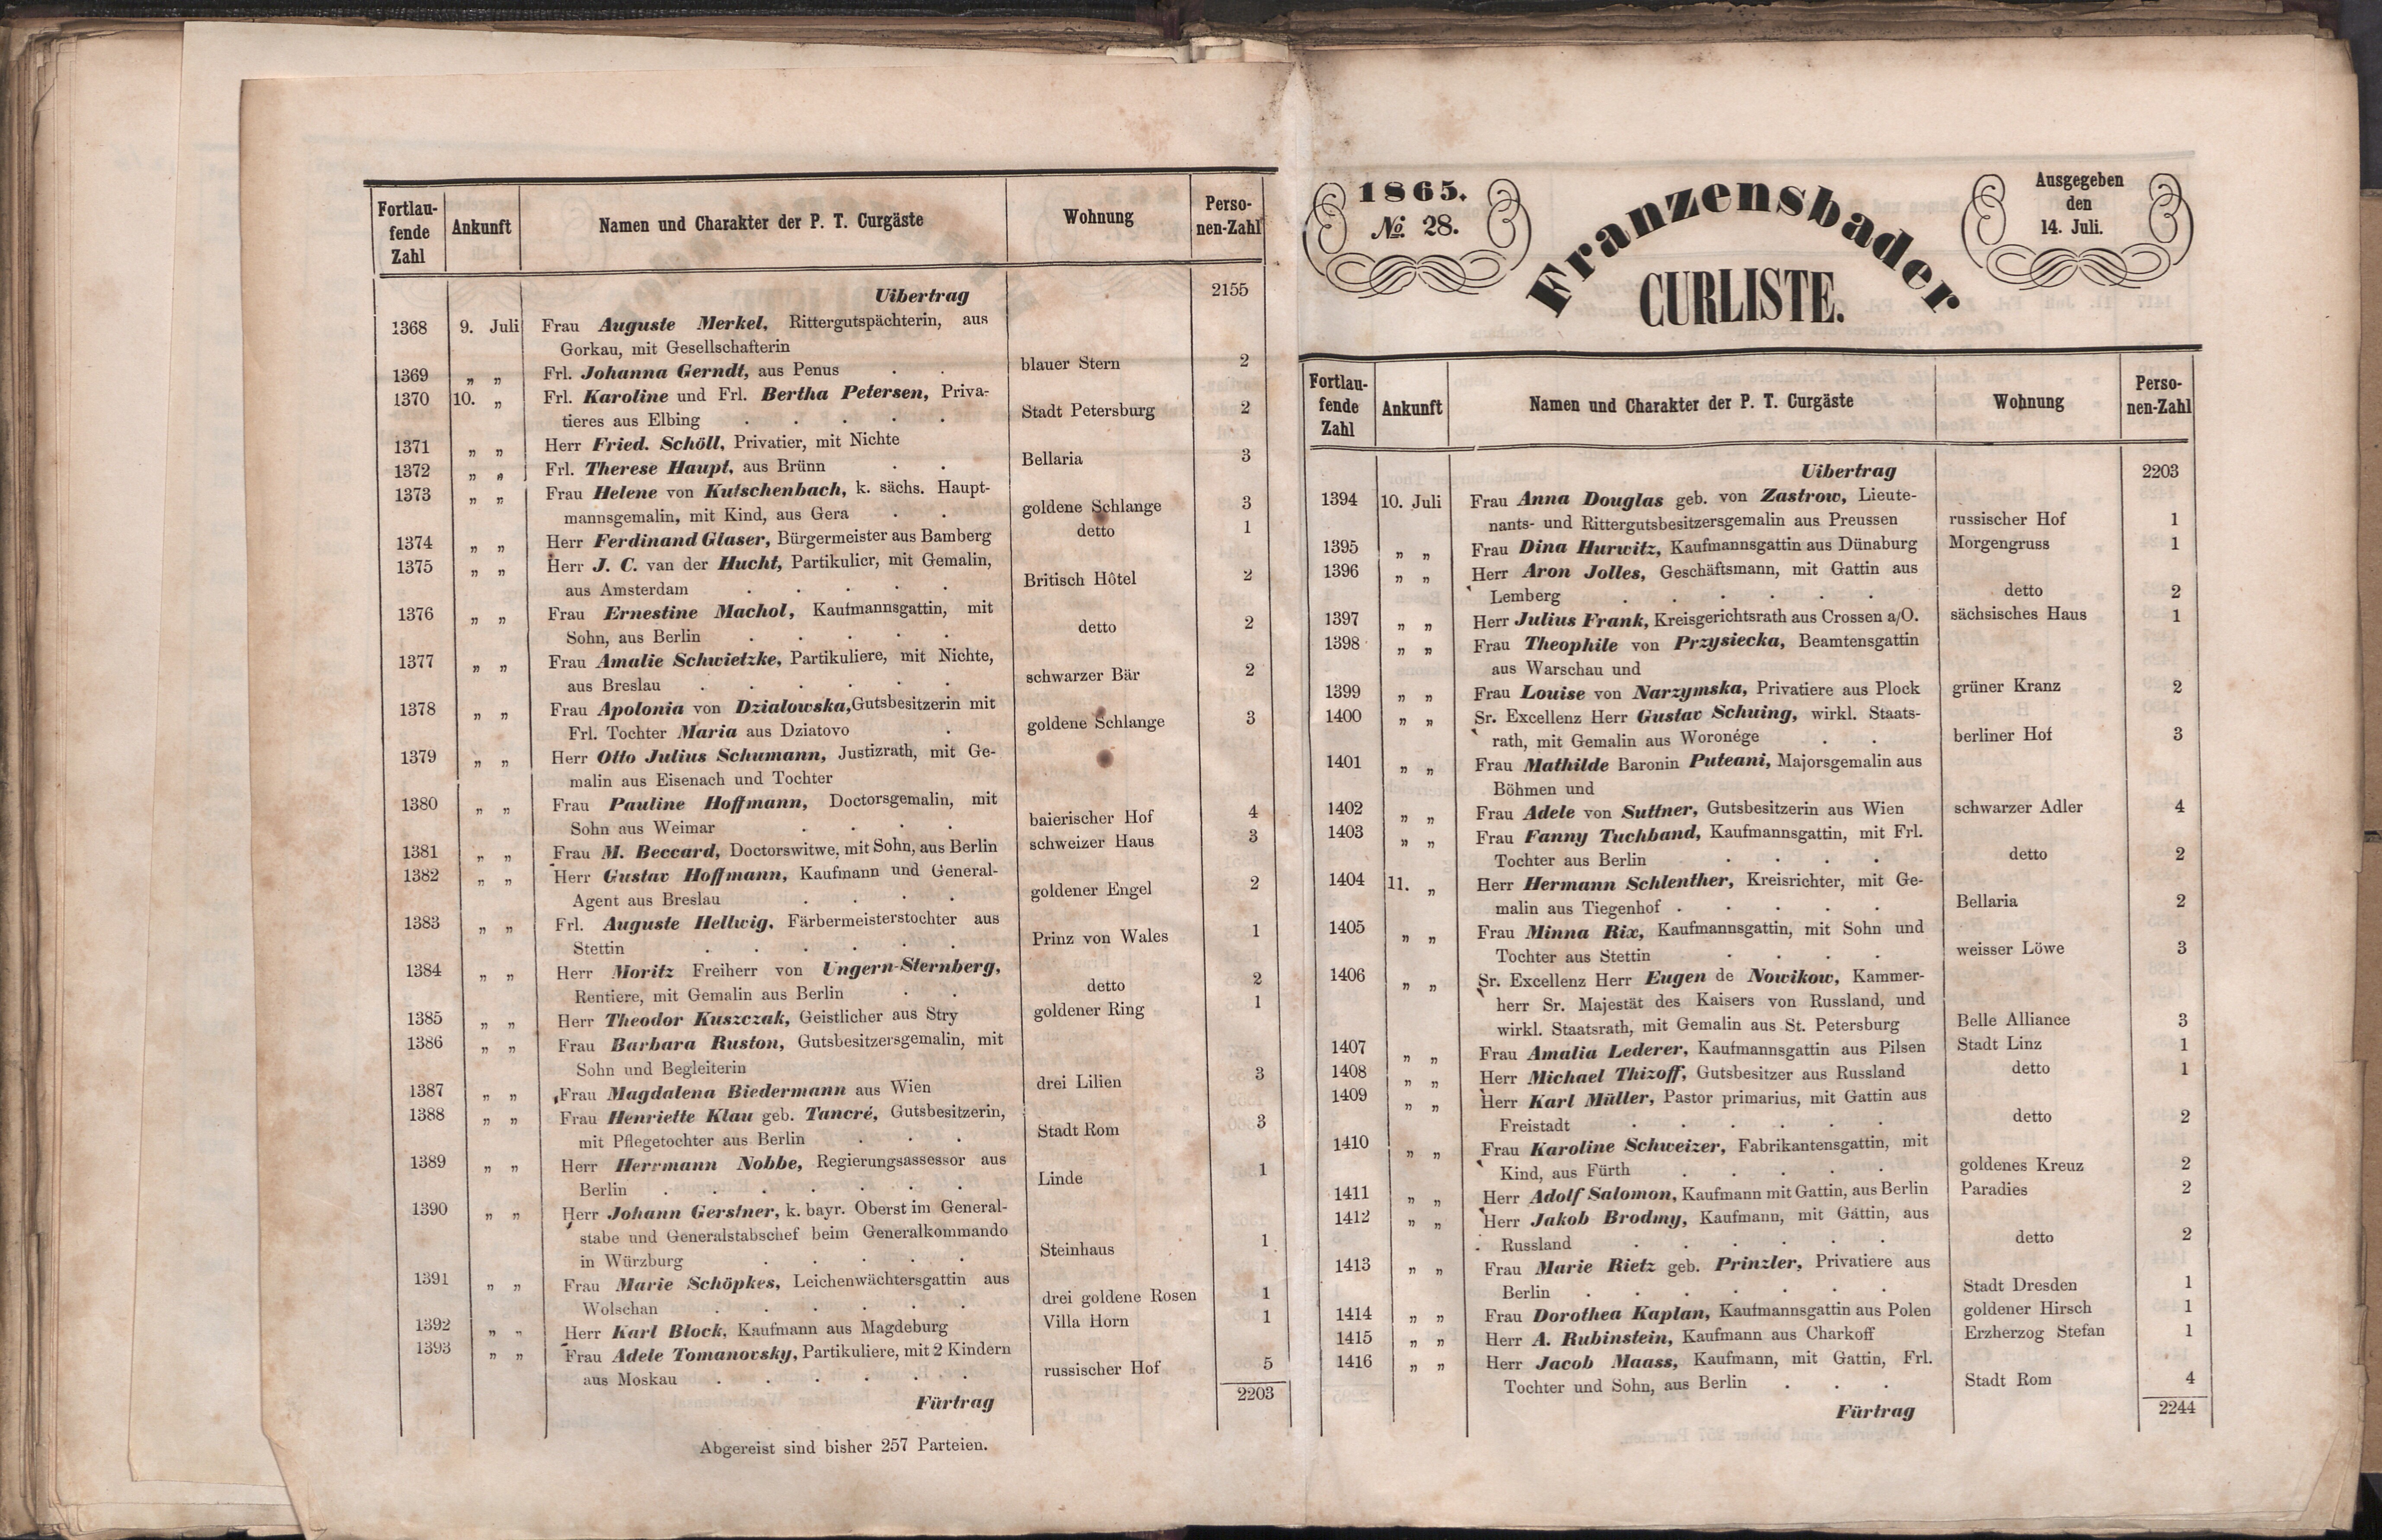 Fortlau-
fende
Zahl
Ankunft
Namen und Charakter der P. T. Curgäste
Wohnung
Perso-
nen-Zahl
Uibertrag 2155
1368 9. Juli Frau Auguste Merkel, Rittergutspächterin, aus
Gorkau, mit Gesellschafterin
blauer Stern 2
1369 „ „ Frl. Johanna Gerndt, aus Penus . .
1370 10. „ Frl. Karoline und Frl. Bertha Petersen, Priva-
tieres aus Elbing . . . . . Stadt Petersburg 2
1371 „ „ Herr Fried. Schöll, Privatier, mit Nichte
1372 „ „ Frl. Therese Haupt, aus Brünn . . Bellaria 3
1373 „ „ Frau Helene von Kutschenbach, k. sächs. Haupt-
mannsgemalin, mit Kind, aus Gera . . goldene Schlange 3
1374 „ „ Herr Ferdinand Glaser, Bürgermeister aus Bamberg detto 1
1375 „ „ Herr J. C. van der Hucht, Partikulier, mit Gemalin,
aus Amsterdam . . . . . Britisch Hôtel 2
1376 „ „ Frau Ernestine Machol, Kaufmannsgattin, mit
Sohn, aus Berlin . . . . . detto 2
1377 „ „ Frau Amalie Schwietzke, Partikuliere, mit Nichte,
aus Breslau . . . . . . schwarzer Bär 2
1378 „ „ Frau Apolonia von Dzialowska, Gutsbesitzerin mit
Frl. Tochter Maria aus Dziatovo . goldene Schlange 3
1379 „ „ Herr Otto Julius Schumann, Justizrath, mit Ge-
malin aus Eisenach und Tochter
1380 „ „ Frau Pauline Hoffmann, Doctorsgemalin, mit
Sohn aus Weimar . . . . baierischer Hof 4
1381 „ „ Frau M. Beccard, Doctorswitwe, mit Sohn, aus Berlin schweizer Haus 3
1382 „ „ Herr Gustav Hoffmann, Kaufmann und General-
Agent aus Breslau . . . . goldener Engel 2
1383 „ „ Frl. Auguste Hellwig, Färbermeisterstochter aus
Stettin . . . . . . Prinz von Wales 1
1384 „ „ Herr Moritz Freiherr von Ungern-Sternberg,
Rentiere, mit Gemalin aus Berlin . . detto 2
1385 „ „ Herr Theodor Kuszczak, Geistlicher aus Stry goldener Ring 1
1386 „ „ Frau Barbara Ruston, Gutsbesitzersgemalin, mit
Sohn und Begleiterin
1387 „ „ Frau Magdalena Biedermann aus Wien drei Lilien 3
1388 „ „ Frau Henriette Klau geb. Tancré, Gutsbesitzerin,
mit Pflegetochter aus Berlin . . . Stadt Rom 3
1389 „ „ Herr Herrmann Nobbe, Regierungsassessor aus
Berlin . . . . . . . Linde 1
1390 „ „ Herr Johann Gerstner, k. bayr. Oberst im General-
stabe und Generalstabschef beim Generalkommando
in Würzburg . . . . . Steinhaus 1
1391 „ „ Frau Marie Schöpkes, Leichenwächtersgattin aus
Wolschan . . . . . . drei goldene Rosen 1
1392 „ „ Herr Karl Block, Kaufmann aus Magdeburg Villa Horn 1
1393 „ „ Frau Adele Tomanovsky, Partikuliere, mit 2 Kindern
aus Moskau . . . . . . russischer Hof 5
Fürtrag 2203
Abgereist sind bisher 257 Parteien.
1865.
No. 28.
Franzensbader
CURLISTE.
Ausgegeben
den
14. Juli.
Fortlau-
fende
Zahl
Ankunft
Namen und Charakter der P. T. Curgäste
Wohnung
Perso-
nen-Zahl
Uibertrag 2203
1394 10. Juli Frau Anna Douglas geb. von Zastrow, Lieute-
nants- und Rittergutsbesitzersgemalin aus Preussen russischer Hof 1
1395 „ „ Frau Dina Hurwitz, Kaufmannsgattin aus Dünaburg Morgengruss 1
1396 „ „ Herr Aron Jolles, Geschäftsmann, mit Gattin aus
Lemberg . . . . . . detto 2
1397 „ „ Herr Julius Frank, Kreisgerichtsrath aus Crossen a/O. sächsisches Haus 1
1398 „ „ Frau Theophile von Przysiecka, Beamtensgattin
aus Warschau und
1399 „ „ Frau Louise von Narzymska, Privatiere aus Plock grüner Kranz 2
1400 „ „ Sr. Excellenz Herr Gustav Schuing, wirkl. Staats-
rath, mit Gemalin aus Woronége . . berliner Hof 3
1401 „ „ Frau Mathilde Baronin Puteani, Majorsgemalin aus
Böhmen und
1402 „ „ Frau Adele von Suttner, Gutsbesitzerin aus Wien schwarzer Adler 4
1403 „ „ Frau Fanny Tuchband, Kaufmannsgattin, mit Frl.
Tochter aus Berlin . . . . detto 2
1404 11. „ Herr Hermann Schlenther, Kreisrichter, mit Ge-
malin aus Tiegenhof . . . . . Bellaria 2
1405 „ „ Frau Minna Rix, Kaufmannsgattin, mit Sohn und
Tochter aus Stettin . . . . weisser Löwe 3
1406 „ „ Sr. Excellenz Herr Eugen de Nowikow, Kammer-
herr Sr. Majestät des Kaisers von Russland, und
wirkl. Staatsrath, mit Gemalin aus St. Petersburg Belle Alliance 3
1407 „ „ Frau Amalia Lederer, Kaufmannsgattin aus Pilsen Stadt Linz 1
1408 „ „ Herr Michael Thizoff, Gutsbesitzer aus Russland detto 1
1409 „ „ Herr Karl Müller, Pastor primarius, mit Gattin aus
Freistadt . . . . . . detto 2
1410 „ „ Frau Karoline Schweizer, Fabrikantensgattin, mit
Kind, aus Fürth . . . . . goldenes Kreuz 2
1411 „ „ Herr Adolf Salomon, Kaufmann mit Gattin, aus Berlin Paradies 2
1412 „ „ Herr Jakob Brodmy, Kaufmann, mit Gattin, aus
Russland . . . . . . detto 2
1413 „ „ Frau Marie Rietz geb. Prinzler, Privatiere aus
Berlin . . . . . . . Stadt Dresden 1
1414 „ „ Frau Dorothea Kaplan, Kaufmannsgattin aus Polen goldener Hirsch 1
1415 „ „ Herr A. Rubinstein, Kaufmann aus Charkoff Erzherzog Stefan 1
1416 „ „ Herr Jacob Maass, Kaufmann, mit Gattin, Frl.
Tochter und Sohn, aus Berlin . . . Stadt Rom 4
Fürtrag 2244